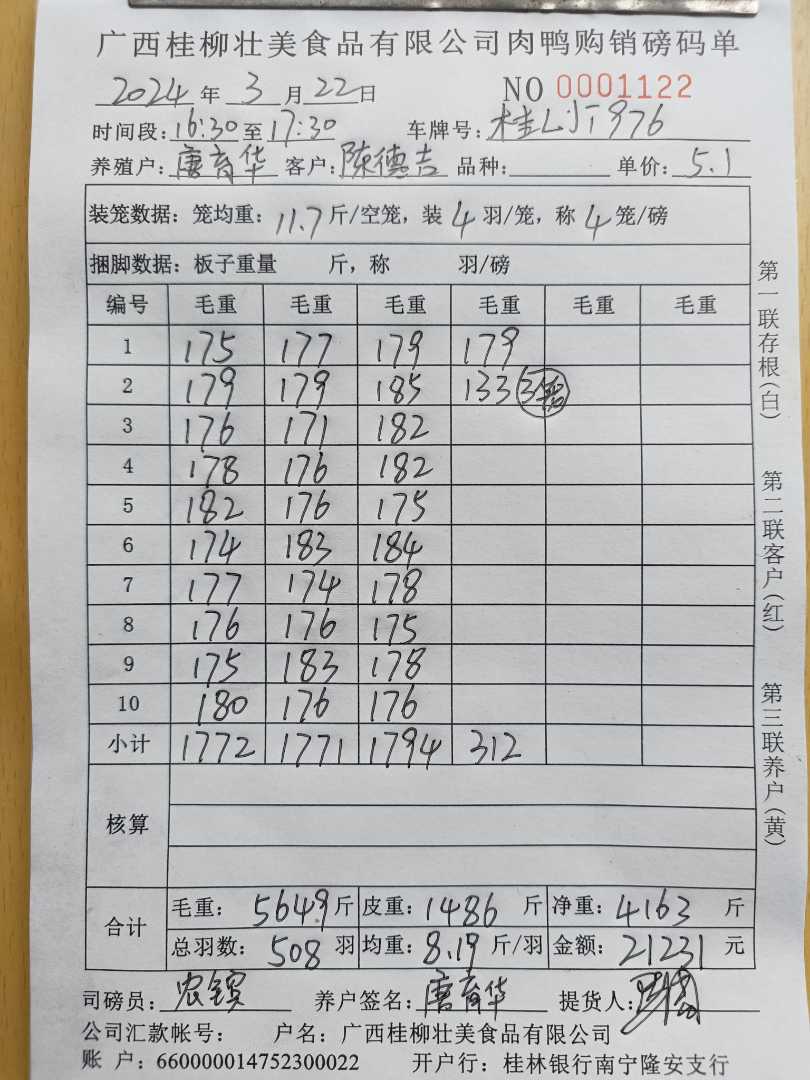 广西桂柳壮美食品有限公司肉鸭购销磅码单
2024 年 3 月 22 日 NO 0001122
时间段: 16:30 至 17:30 车牌号: 桂L
养殖户: 唐育华 客户: 陈德吉 品种: 单价: 5.1
装笼数据: 笼均重: 11.7 斤/空笼, 装 4 羽/笼, 称 4 笼/磅
捆脚数据: 板子重量 斤, 称 羽/磅
编号 毛重 毛重 毛重 毛重 毛重 毛重
1 175 177 179 179
2 179 179 185 133 3笼
3 176 171 182
4 178 176 182
5 182 176 175
6 174 183 184
7 177 174 178
8 176 176 175
9 175 183 178
10 180 176 176
小计 1772 1771 1794 312
核算
合计
毛重: 5649 斤 皮重: 1486 斤 净重: 4163 斤
总羽数: 508 羽 均重: 8.19 斤/羽 金额: 21231 元
司磅员: 养户签名: 唐育华 提货人:
公司汇款帐号: 户名: 广西桂柳壮美食品有限公司
账 户: 660000014752300022 开户行: 桂林银行南宁隆安支行
第一联存根(白)
第二联客户(红)
第三联养户(黄)